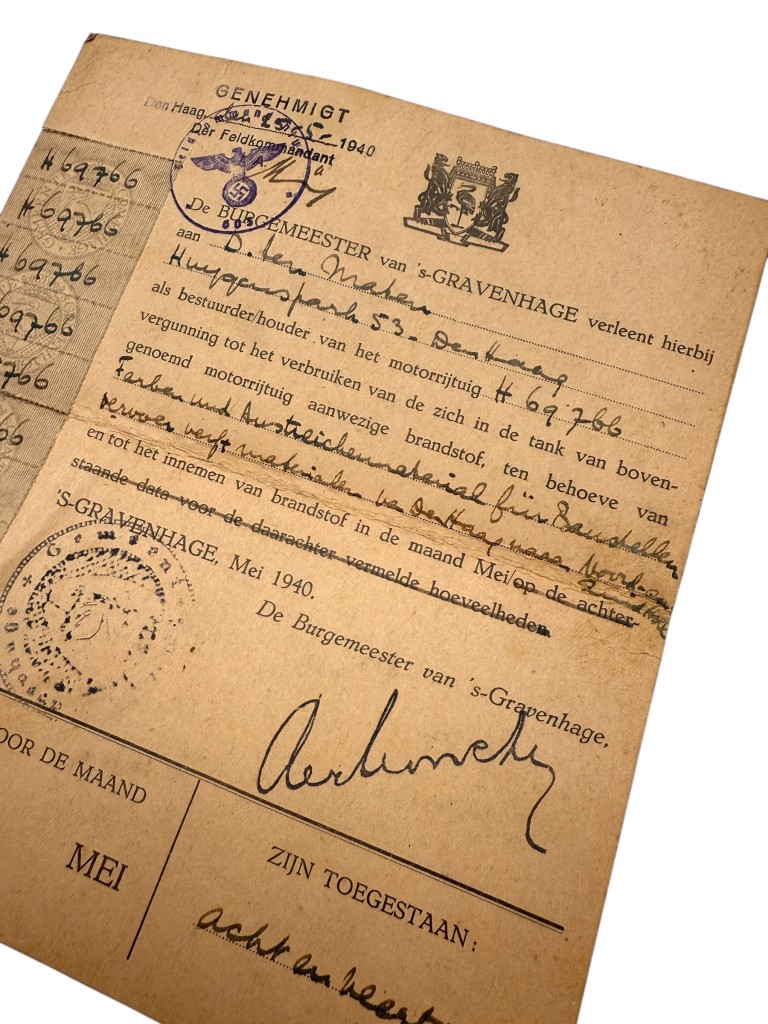 GENEHMIGT
Den Haag, den 25-5-1940
Der Feldkommandant
603
H 69766
H 69766
H 69766
69766
766
66
De BURGEMEESTER van 's-GRAVENHAGE verleent hierbij
aan D. ten Maten
Huygenspark 53. Den Haag
als bestuurder/houder van het motorrijtuig H 69.766
vergunning tot het verbruiken van de zich in de tank van boven-
genoemd motorrijtuig aanwezige brandstof, ten behoeve van
Farben und Anstreichenmaterial für Baustellen
vervoer verf materialen va Den Haag naar Noord en
Zuid Holl
en tot het innemen van brandstof in de maand Mei/op de achter-
staande data voor de daarachter vermelde hoeveelheden
'S-GRAVENHAGE, Mei 1940.
De Burgemeester van 's-Gravenhage,
OOR DE MAAND
MEI
ZIJN TOEGESTAAN:
acht en veert